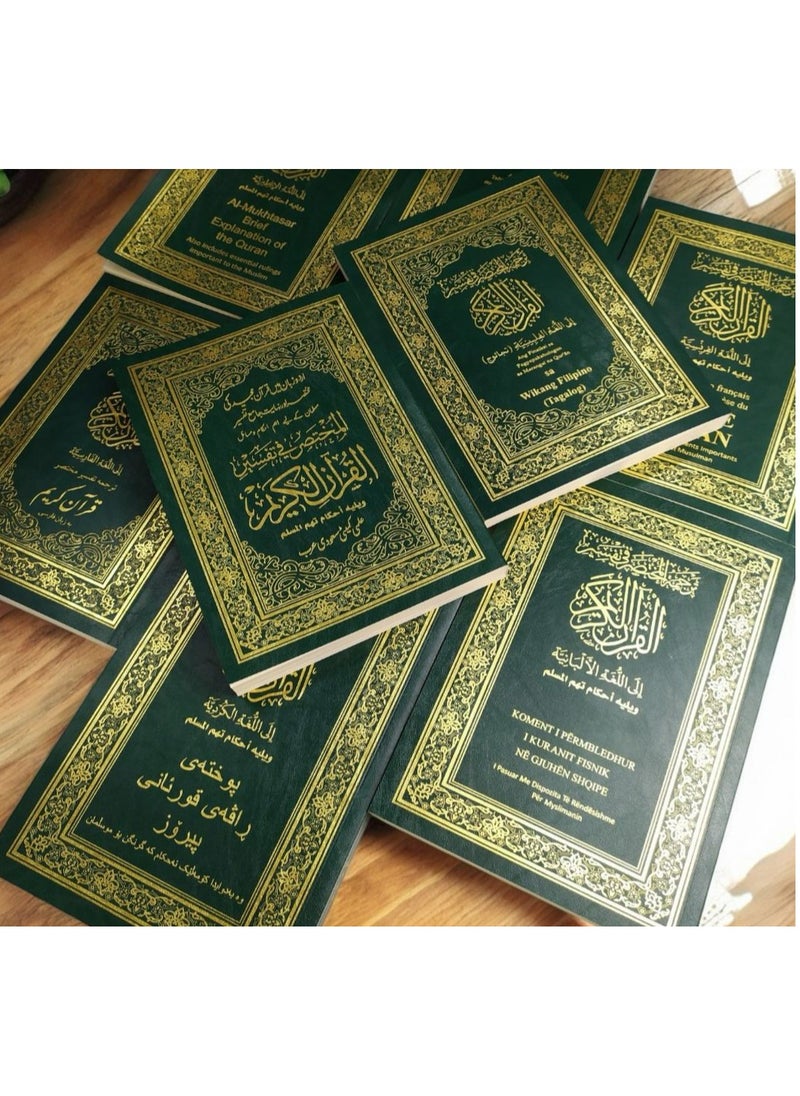 القرآن
إلى اللغة الإنجليزية
ويليه أحكام تهم المسلم
Al-Mukhtasar
Brief
Explanation of
the Quran
Also includes essential rulings
important to the Muslim
القرآن الكريم
إلى اللغة الفلبينية (تجالوج)
Ang Pinaikli na
sa
Wikang Filipino
(Tagalog)
القرآن الكريم
إلى اللغة الفرنسية
ويليه أحكام تهم
français
du
AN
Importants
Musulman
إلى اللغة الفارسية
ترجمه تفسير مختصر
قرآن كريم
به زبان فارسی
اردو زبان میں قرآن مجید کی
المختصر في تفسير
القرآن الكريم
ويليه أحكام تهم المسلم
القرآن
إلى اللغة الكردية
ويليه أحكام تهم المسلم
پوختەی
ڕاڤەی قورئانی
پیرۆز
القرآن الكريم
إلى اللغة الألبانية
ويليه أحكام تهم المسلم
KOMENT I PËRMBLEDHUR
I KURANIT FISNIK
NË GJUHËN SHQIPE
I Pasuar Me Dispozita Të Rëndësishme
Për Myslimanin